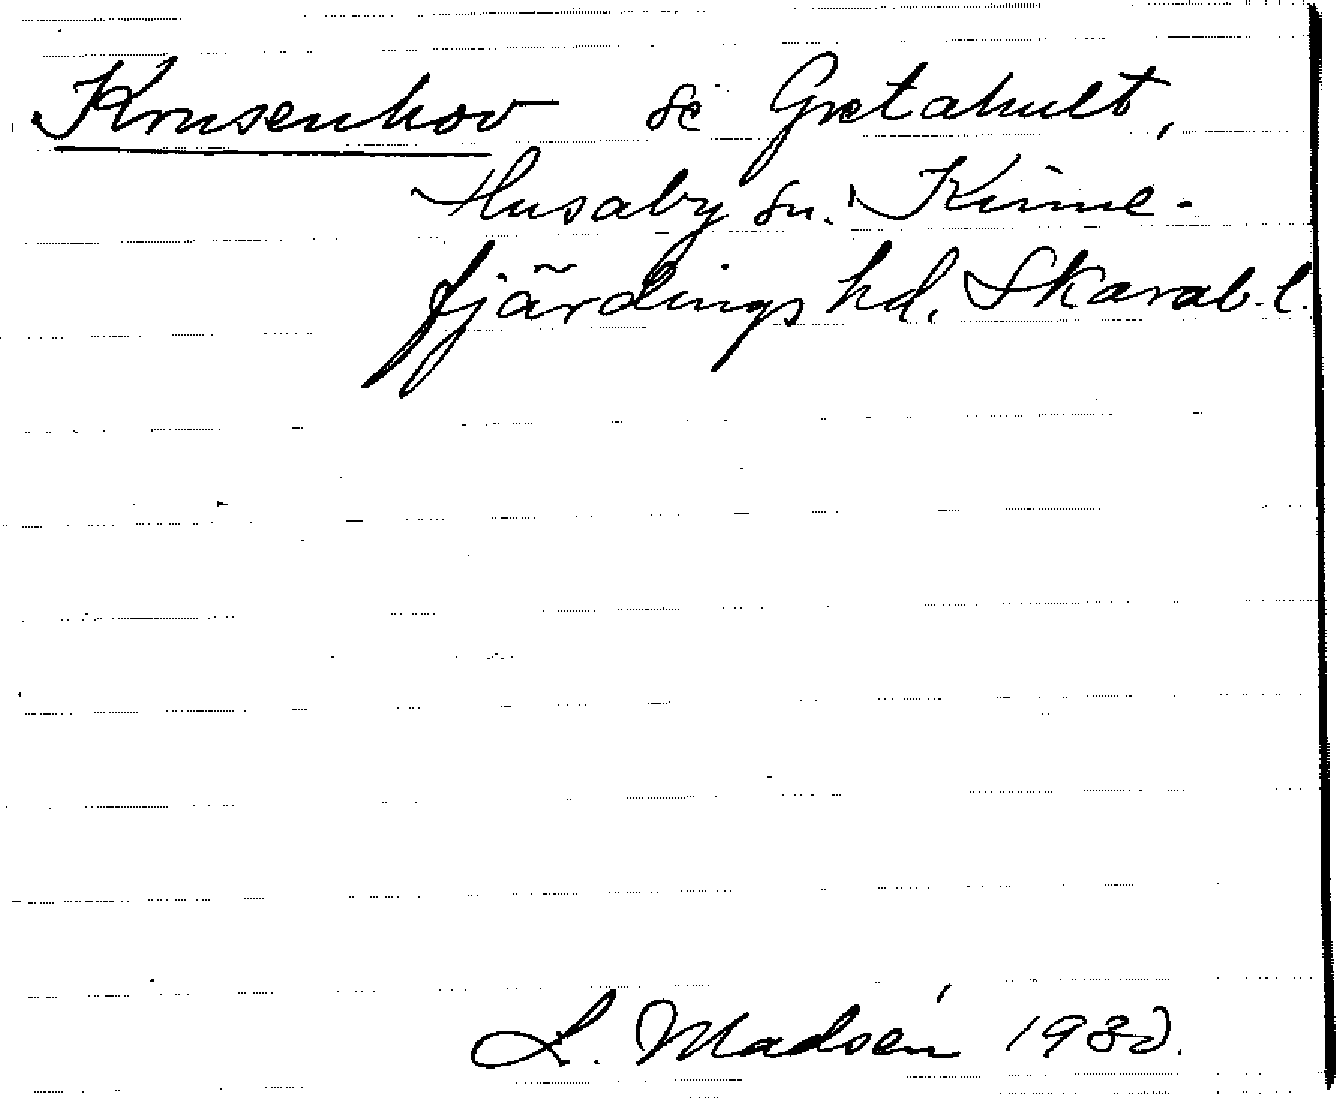 Krusenhov se Gretahult,
Husaby sn. Kinne-
fjärdings hd. Skarab. l.
L. Madsén 1930.